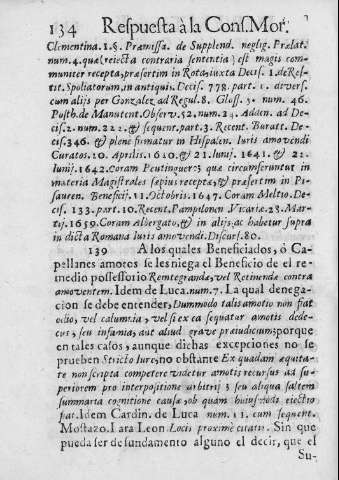 134 Respuesta à la Cons. Mor.
Clementina. 1. §. Præmissa. de Supplend. neglig. Prælat.
num. 4. quæ (reiecta contraria sententia) est magis com-
muniter recepta, præsertim in Rota, iuxta Decis. 1. de Res-
tit. Spoliatorum, in antiqui. Decis. 778. part. 1. divers.
cum alijs per Gonzalez ad Regul. 8. Gloss. 5. num. 46.
Posth. de Manutent. Observ. 52. num. 24. Adden. ad De-
cis. 2. num. 222. & sequent. part. 3. Recent. Buratt. De-
cis. 346. & plene firmatur in Hispalen. Iuris amovendi
Curatos. 20. Aprilis. 1610. & 21. Iunij. 1641. & 22.
Iunij. 1642. Coram Peutinguer: quæ circumferuntur in
materia Magistrales sæpius receptæ, & præsertim in Pi-
sauren. Beneficij. 11. Octobris. 1647. Coram Meltio. De-
cis. 133. part. 10. Recent. Pampilonen Vicariæ. 28. Mar-
tij. 1659. Coram Albergato, & in alijs, ac habetur supra
in dicta Romana Iuris amovendi. Discurs. 80.
139 A los quales Beneficiados, ò Ca-
pellanes amotos se les niega el Beneficio de el re-
medio possessorio Reintegrandæ, vel Retinendæ contra
amoventem. Idem de Luca. num. 7. La qual denega-
cion se debe entender, Dummodo talis amotio non fiat
odio, vel calumnia, vel si ex ea sequatur amotis dede-
cus, seu infamia, aut aliud grave præiudicium; porque
en tales casos, aunque dichas excepciones no se
prueben Stricto Iure, no obstante Ex quadam æquita-
te non scripta competere videtur amotis recursus ad su-
periorem pro interpositione arbitrij & seu aliqua saltem
summaria cognitione causæ, ob quam huiusmodi eiectio
fiat. Idem Cardin. de Luca num. 11. cum sequent.
Mostazo. Lara Leon Locis proximè citatis. Sin que
pueda ser de fundamento alguno el decir, que el
Su-